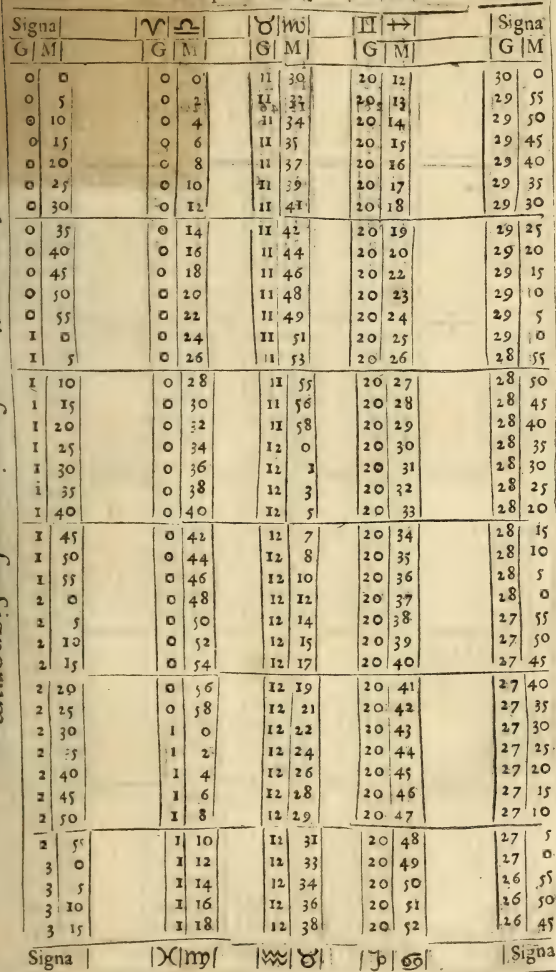 Signa ♈ ♎ ♉ ♏ ♊ ♐ Signa
G M G M G M G M G M
0 0 0 0 11 30 20 12 30 0
0 5 0 2 11 32 20 13 29 55
0 10 0 4 11 34 20 14 29 50
0 15 0 6 11 35 20 15 29 45
0 20 0 8 11 37 20 16 29 40
0 25 0 10 11 39 20 17 29 35
0 30 0 12 11 41 20 18 29 30
0 35 0 14 11 42 20 19 29 25
0 40 0 16 11 44 20 20 29 20
0 45 0 18 11 46 20 22 29 15
0 50 0 20 11 48 20 23 29 10
0 55 0 22 11 49 20 24 29 5
1 0 0 24 11 51 20 25 29 0
1 5 0 26 11 53 20 26 28 55
1 10 0 28 11 55 20 27 28 50
1 15 0 30 11 56 20 28 28 45
1 20 0 32 11 58 20 29 28 40
1 25 0 34 12 0 20 30 28 35
1 30 0 36 12 1 20 31 28 30
1 35 0 38 12 3 20 32 28 25
1 40 0 40 12 5 20 33 28 20
1 45 0 42 12 7 20 34 28 15
1 50 0 44 12 8 20 35 28 10
1 55 0 46 12 10 20 36 28 5
2 0 0 48 12 12 20 37 28 0
2 5 0 50 12 14 20 38 27 55
2 10 0 52 12 15 20 39 27 50
2 15 0 54 12 17 20 40 27 45
2 20 0 56 12 19 20 41 27 40
2 25 0 58 12 21 20 42 27 35
2 30 1 0 12 22 20 43 27 30
2 35 1 2 12 24 20 44 27 25
2 40 1 4 12 26 20 45 27 20
2 45 1 6 12 28 20 46 27 15
2 50 1 8 12 29 20 47 27 10
2 55 1 10 12 31 20 48 27 5
3 0 1 12 12 33 20 49 27 0
3 5 1 14 12 34 20 50 26 55
3 10 1 16 12 36 20 51 26 50
3 15 1 18 12 38 20 52 26 45
Signa ♓ ♍ ♒ ♉ ♑ ♋ Signa